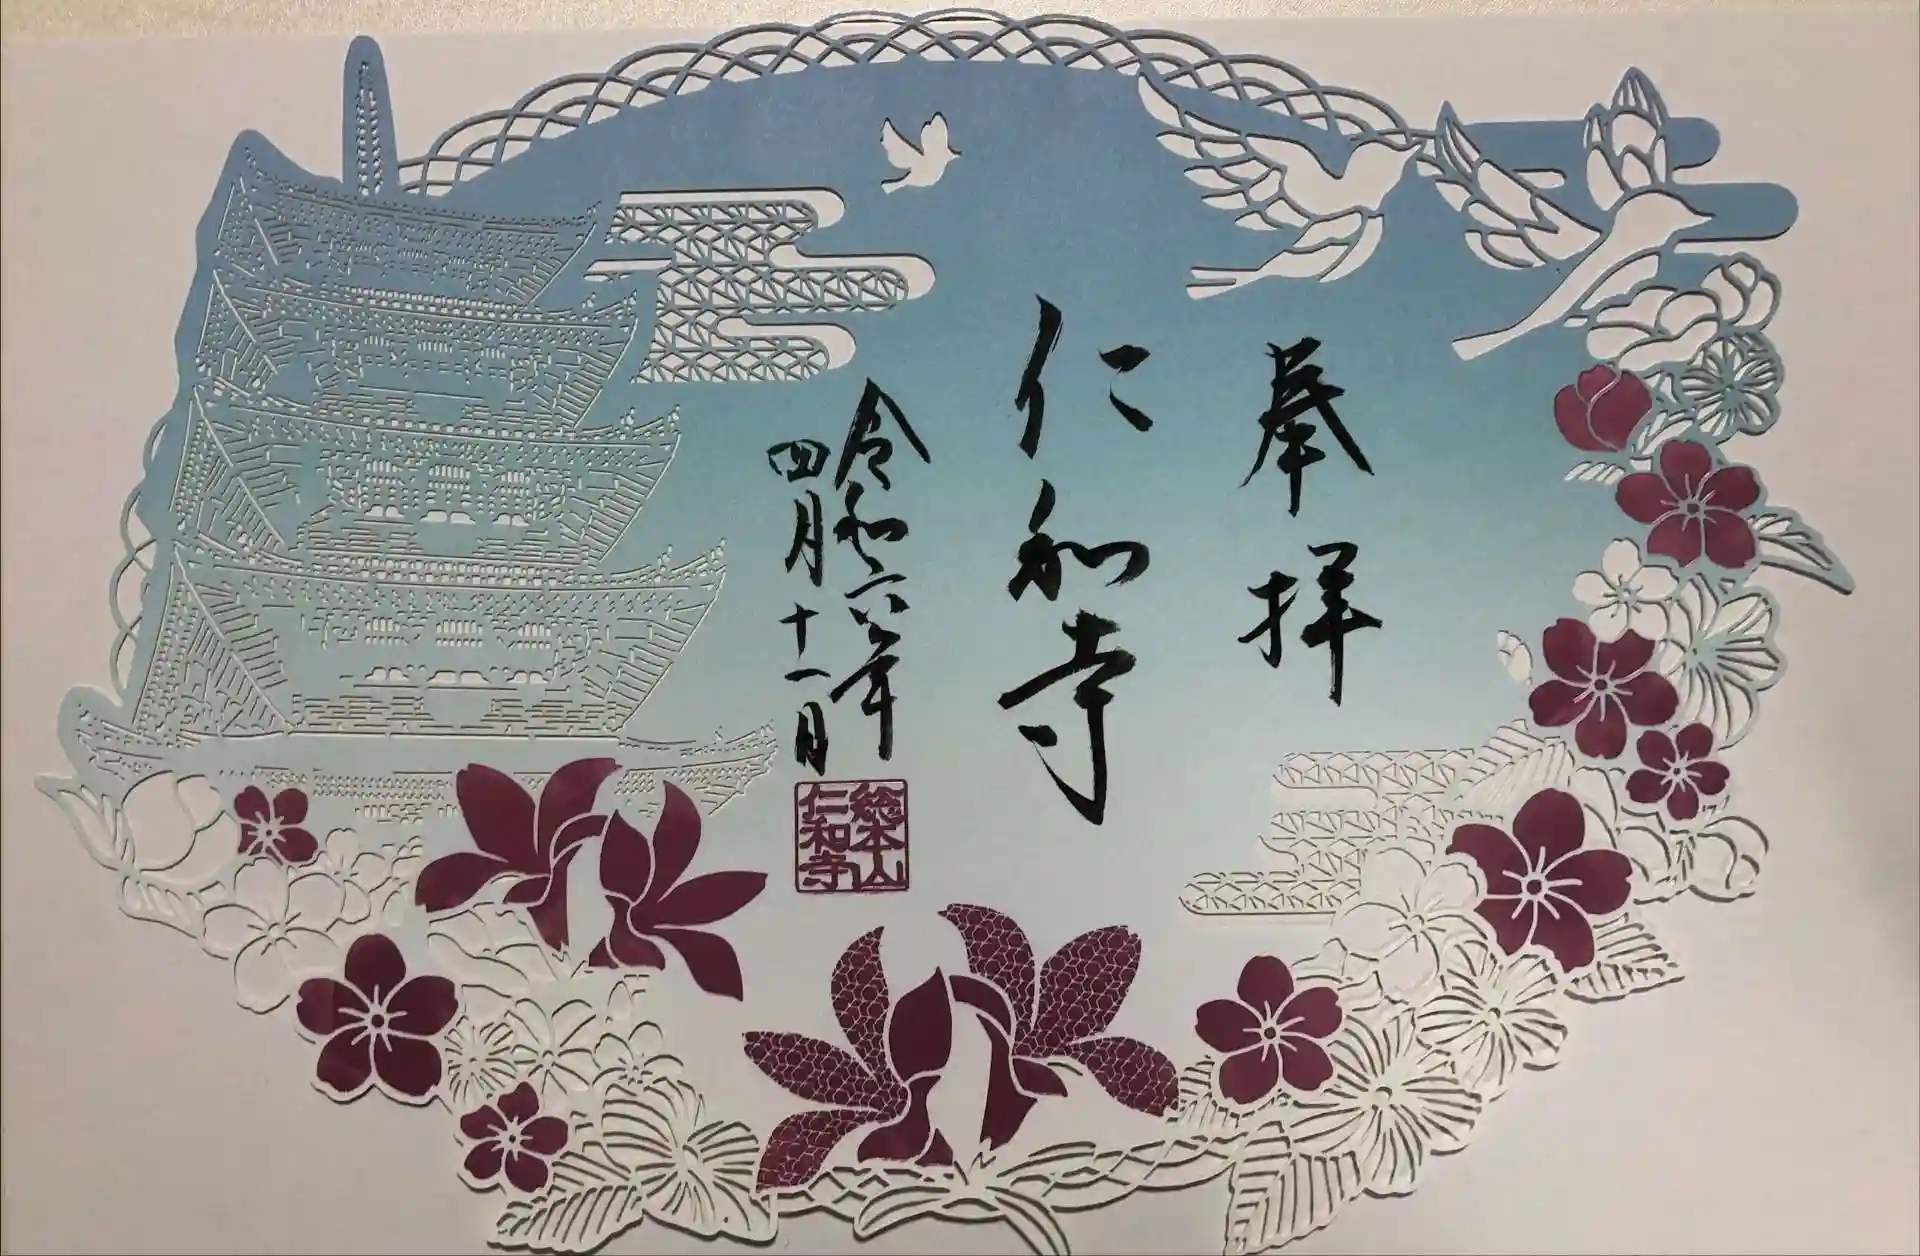 奉拝
仁和寺
令和六年
四月十一日
総本山
仁和寺